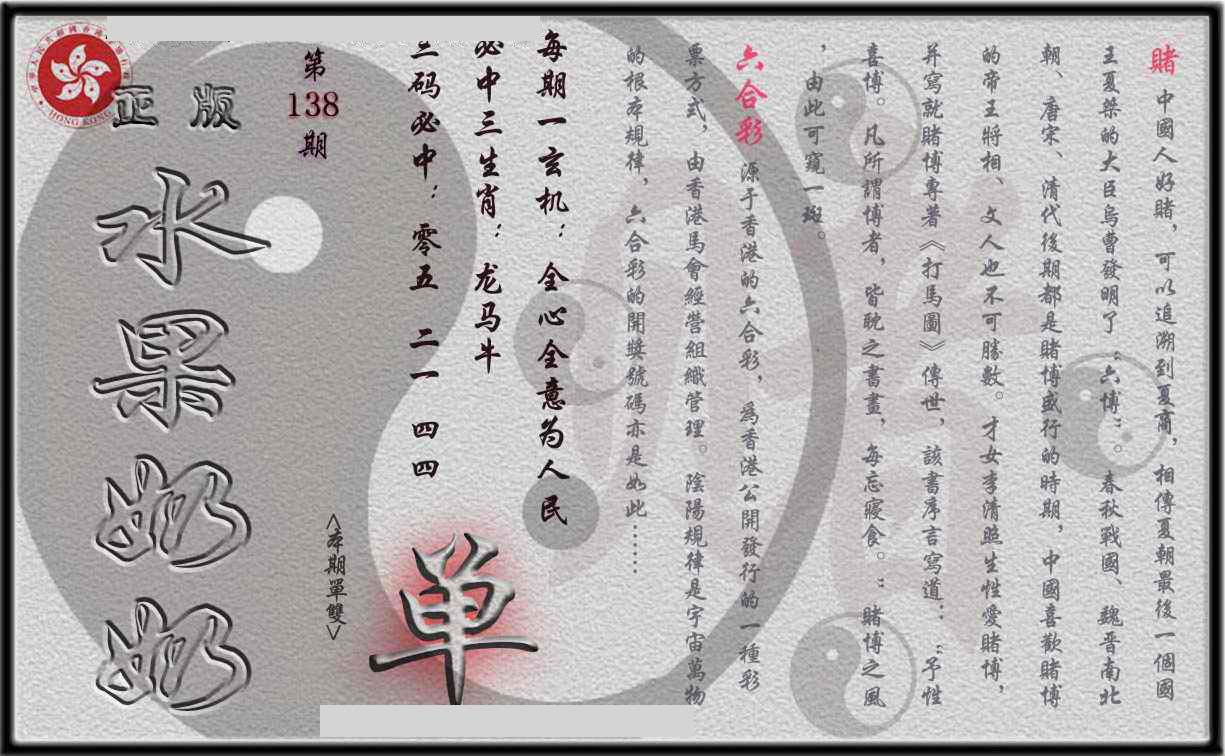 賭 中國人好賭，可以追溯到夏商，相傳夏朝最後一個國
王夏桀的大臣烏曹發明了“六博”。春秋戰國、魏晋南北
朝、唐宋、清代後期都是賭博盛行的時期，中國喜歡賭博
的帝王將相、文人也不可勝數。才女李清照生性愛賭博，
并寫就賭博專著《打馬圖》傳世，該書序言寫道：“予性
喜博。凡所謂博者，皆耽之書畫，每忘寢食。”賭博之風
，由此可窺一斑。
六合彩 源于香港的六合彩，為香港公開發行的一種彩
票方式，由香港馬會經營組織管理。陰陽規律是宇宙萬物
的根本規律，六合彩的開獎號碼亦是如此……
每期一玄机：全心全意为人民
必中三生肖：龙马牛
三码必中：零五 二一 四四
单
<本期單雙>
第
138
期
正版
水果奶奶
HONG KONG